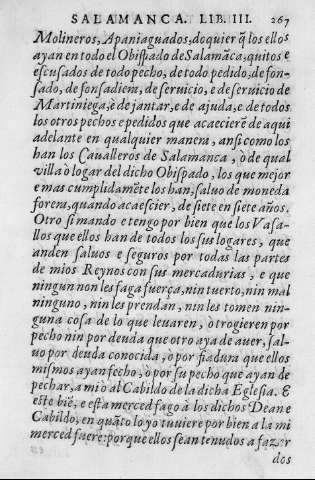 SALAMANCA. LIB. III. 267
Molineros, Apaniaguados, do quier q̃ los ellos
ayan en todo el Obispado de Salamãca, quitos e
escusados de todo pecho, de todo pedido, de fon-
sado, de fonsadiem, de servicio, e de servicio de
Martiniega, è de jantar, e de ajuda, e de todos
los otros pechos e pedidos que acaecierẽ de aqui
adelante en qualquier manera, ansi como los
han los Caualleros de Salamanca, ò de qual
villa ò logar del dicho Obispado, los que mejor
e mas cumplidamẽte los han, saluo de moneda
forera, quando acaescier, de siete en siete años.
Otro si mando e tengo por bien que los Vasa-
llos que ellos han de todos los sus logares, que
anden saluos e seguros por todas las partes
de mios Reynos con sus mercadurias, e que
ningun non les faga fuerça, nin tuerto, nin mal
ninguno, nin les prendan, nin les tomen nin-
guna cosa de lo que leuaren, o trogieren por
pecho nin por deuda que otro aya de auer, sal-
uo por deuda conocida, o por fiadura que ellos
mismos ayan fecho, ò por su pecho que ayan de
pechar, a mi o al Cabildo de la dicha Eglesia. E
este biẽ, e esta merced fago à los dichos Dean e
Cabildo, en quãto lo yo tuuiere por bien a la mi
merced fuere: porque ellos sean tenudos a fazer
dos